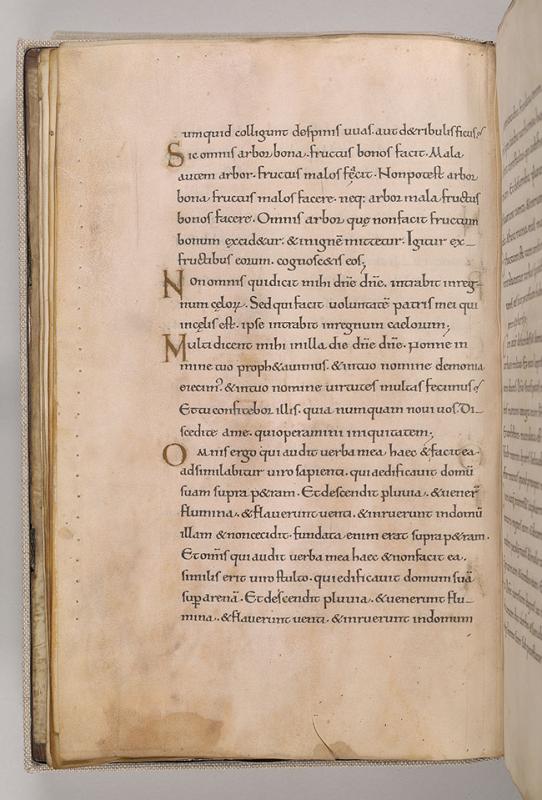 umquid colligunt despinis uuas. aut detribulis ficus;
Sic omnis arbor bona. fructus bonos facit. Mala
autem arbor. fructus malos fęcit. Non potest arbor
bona fructus malos facere. neq; arbor mala fructus
bonos facere. Omnis arbor quę non facit fructum
bonum excid&ur. & inignē mitt&ur. Igitur ex-
fructibus eorum. cognosc&is eos;
Non omnis qui dicit mihi dnē dnē. intrabit inreg-
num cęloꝝ. Sed qui facit voluntatē patris mei qui
incęlis est. ipse intrabit inregnum caelorum;
Multi dicent mihi inilla die dnē dnē. nonne in
nomine tuo proph&auimus. & intuo nomine demonia
eiecim'. & intuo nomine uirtutes multas fecimus;
Et tu confitebor illis. quia numquam noui uos. Di-
scedite ame. qui operamini iniquitatem;
Omnis ergo qui audit uerba mea haec & facit ea.
adsimilabitur uiro sapienti. qui aedificauit domū
suam supra p&ram. Et descendit pluuia. & uener̄
flumina. & flauerunt uenti. & inruerunt indomū
illam & non cecidit. fundata enim erat supra p&ram.
Et omīs qui audit uerba mea haec & non facit ea.
similis erit uiro stulto. qui edificauit domum suā
sup̄ arenā. Et descendit pluuia. & uenerunt flu-
mina. & flauerunt uenti. & inruerunt indomum